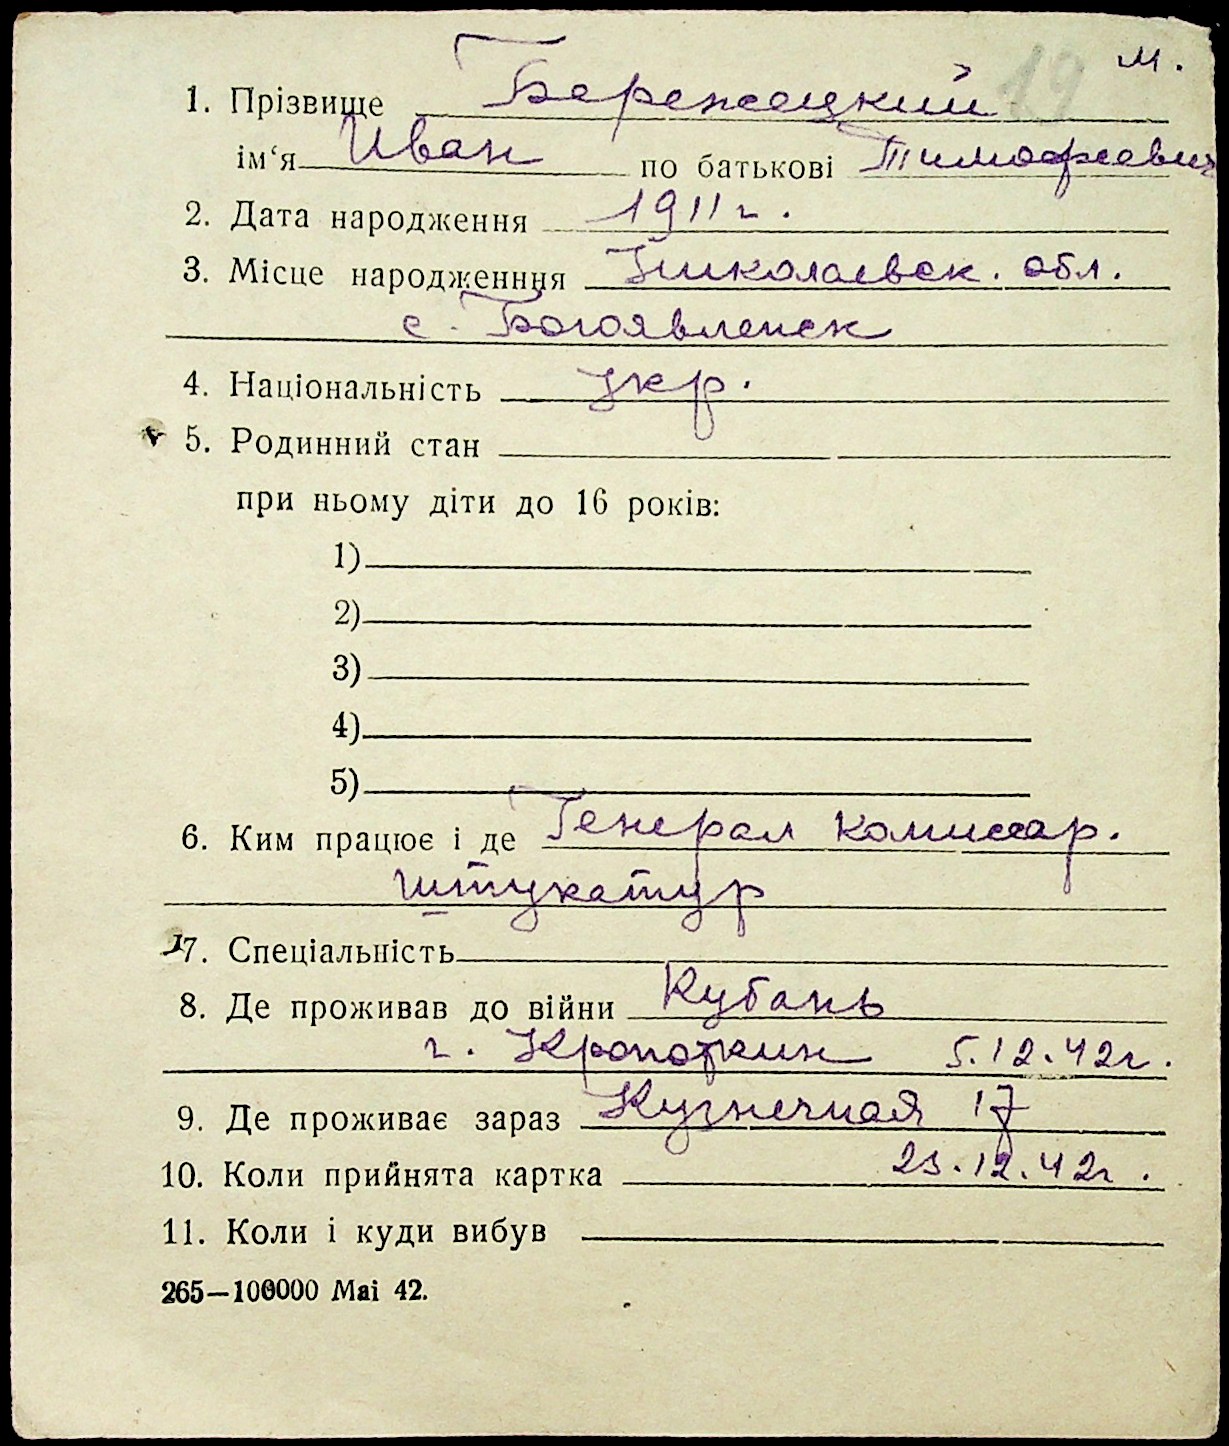 19 м.
1. Прізвище Бережецкий
ім‘я Иван по батькові Тимофеевич
2. Дата народження 1911 г.
3. Місце народженння Николаевск. обл.
с. Богоявленск
4. Національність Укр.
v 5. Родинний стан
при ньому діти до 16 років:
1)
2)
3)
4)
5)
6. Ким працює і де Генерал комиссар.
штукатур
7. Спеціальність
8. Де проживав до війни Кубань
г. Кропоткин 5.12.42г.
9. Де проживає зараз Кузнечная 17
10. Коли прийнята картка 23.12.42г.
11. Коли і куди вибув
265—100000 Mai 42.